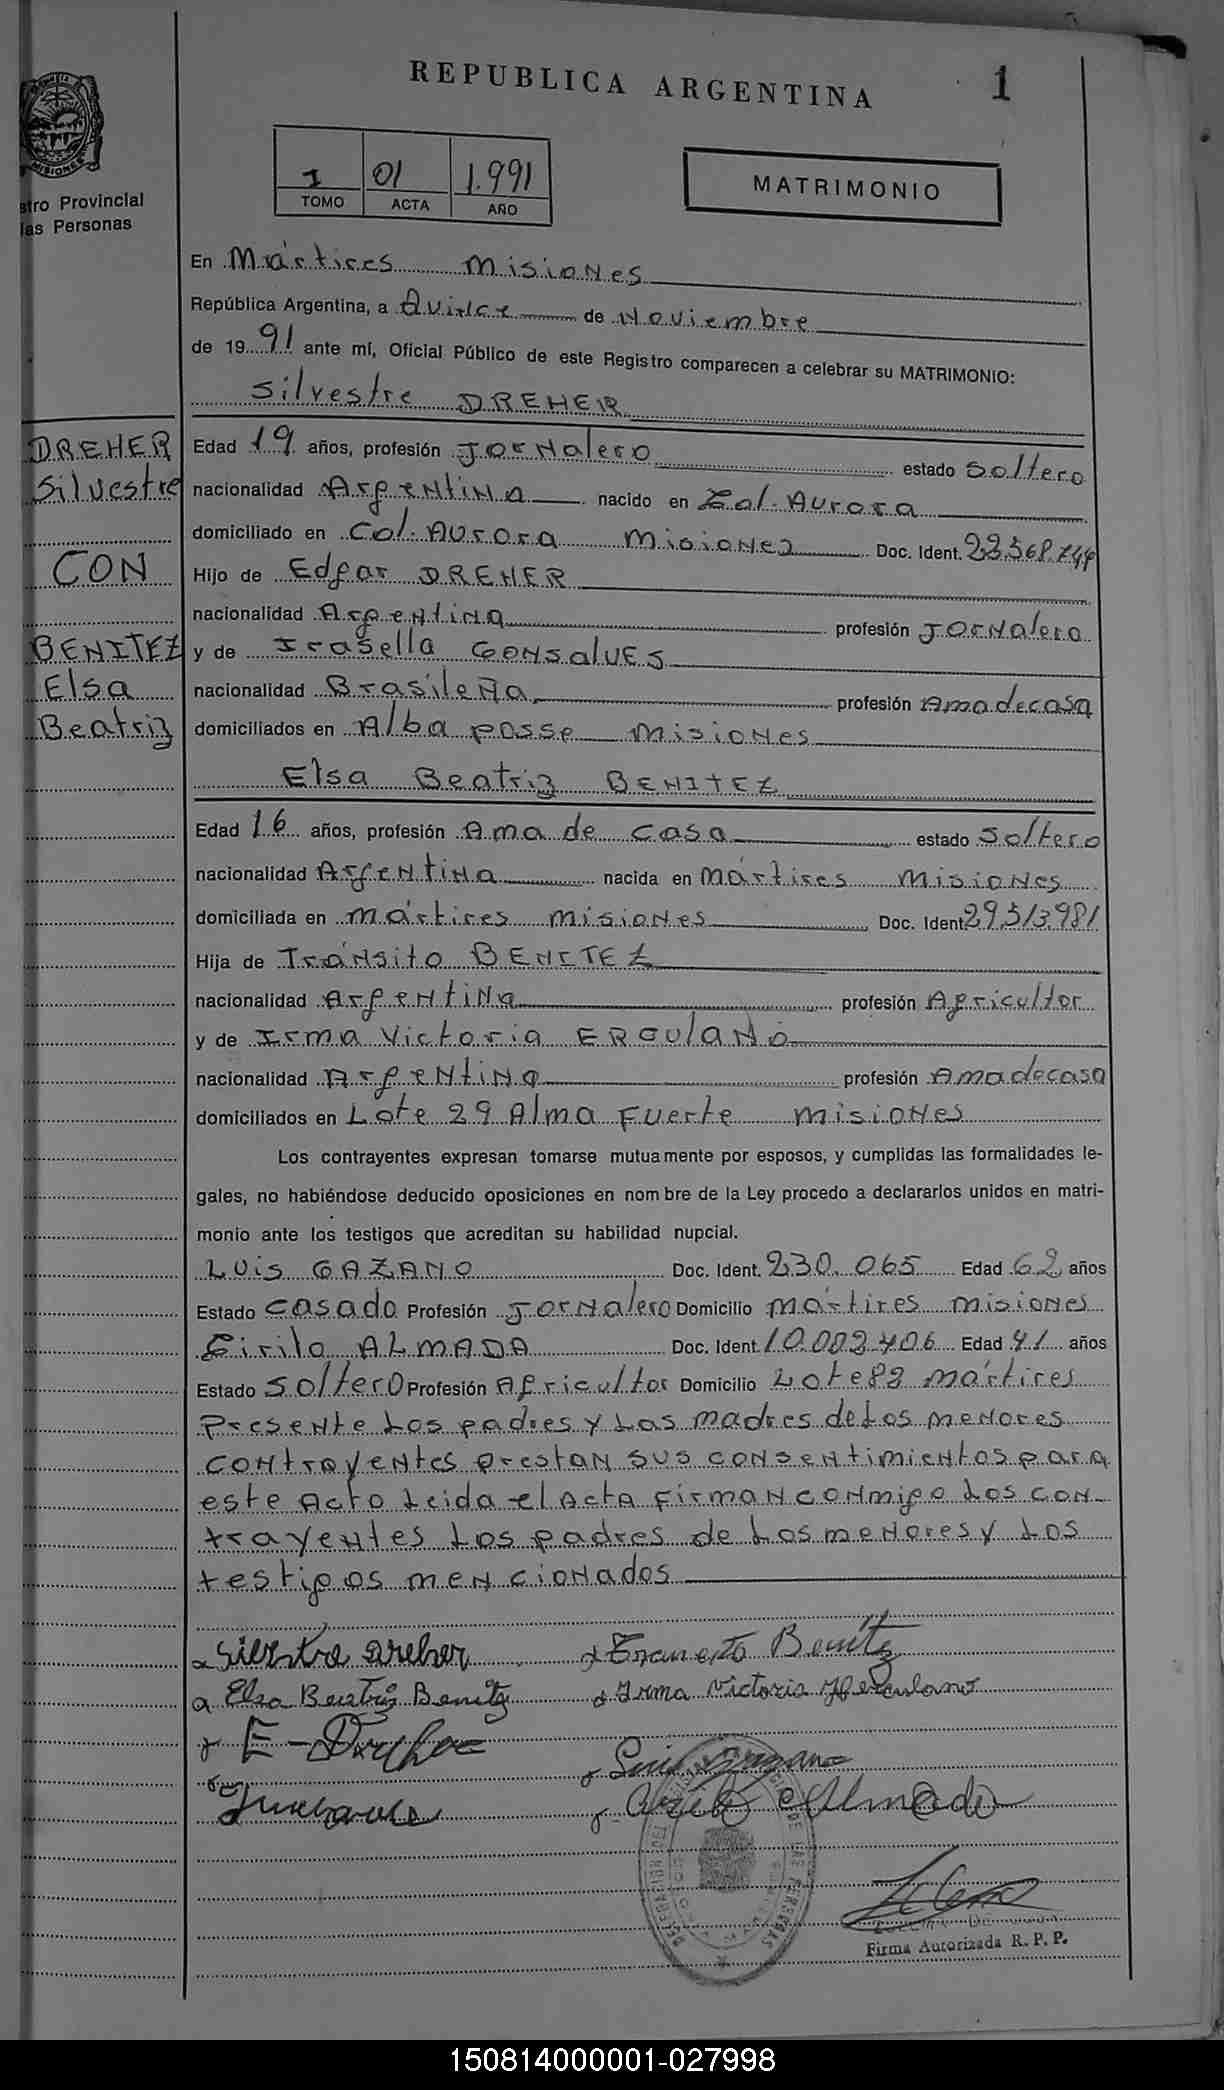 REPUBLICA ARGENTINA
1
I 01 1.991
TOMO ACTA AÑO
MATRIMONIO
stro Provincial
las Personas
En Mártires Misiones
República Argentina, a Quince de Noviembre
de 1991 ante mí, Oficial Público de este Registro comparecen a celebrar su MATRIMONIO:
Silvestre DREHER
DREHER
Silvestre
CON
BENITEZ
Elsa
Beatriz
Edad 19 años, profesión Jornalero estado Soltero
nacionalidad Argentina nacido en Col. Aurora
domiciliado en Col. Aurora Misiones Doc. Ident. 22.568.744
Hijo de Edgar DREHER
nacionalidad Argentina profesión Jornalero
y de Irasella GONSALVES
nacionalidad Brasileña profesión Ama de casa
domiciliados en Alba posse Misiones
Elsa Beatriz BENITEZ
Edad 16 años, profesión Ama de casa estado Soltero
nacionalidad Argentina nacida en Mártires Misiones
domiciliada en Mártires Misiones Doc. Ident 29.513.981
Hija de Tránsito BENITEZ
nacionalidad Argentina profesión Agricultor
y de Irma Victoria ERCULANO
nacionalidad Argentina profesión Ama de casa
domiciliados en Lote 29 Alma Fuerte Misiones
Los contrayentes expresan tomarse mutuamente por esposos, y cumplidas las formalidades le-
gales, no habiéndose deducido oposiciones en nombre de la Ley procedo a declararlos unidos en matri-
monio ante los testigos que acreditan su habilidad nupcial.
Luis GAZANO Doc. Ident. 230.065 Edad 62 años
Estado Casado Profesión Jornalero Domicilio Mártires Misiones
Cirilo ALMADA Doc. Ident. 10.002.406 Edad 41 años
Estado Soltero Profesión Agricultor Domicilio Lote 82 Mártires
Presente Los padres y Las madres de Los menores
contrayentes prestan sus consentimientos para
este Acto Leida el Acta firman conmigo Los con-
trayentes Los padres de Los menores y Los
testigos mencionados
Silvestre Dreher
Benitz
Elsa Beatriz Benitz
Irma Victoria Herculano
E - Dreher
Luis
Almada
DELEGACION DEL DE LAS PERSONAS
Firma Autorizada R. P. P.
150814000001-027998